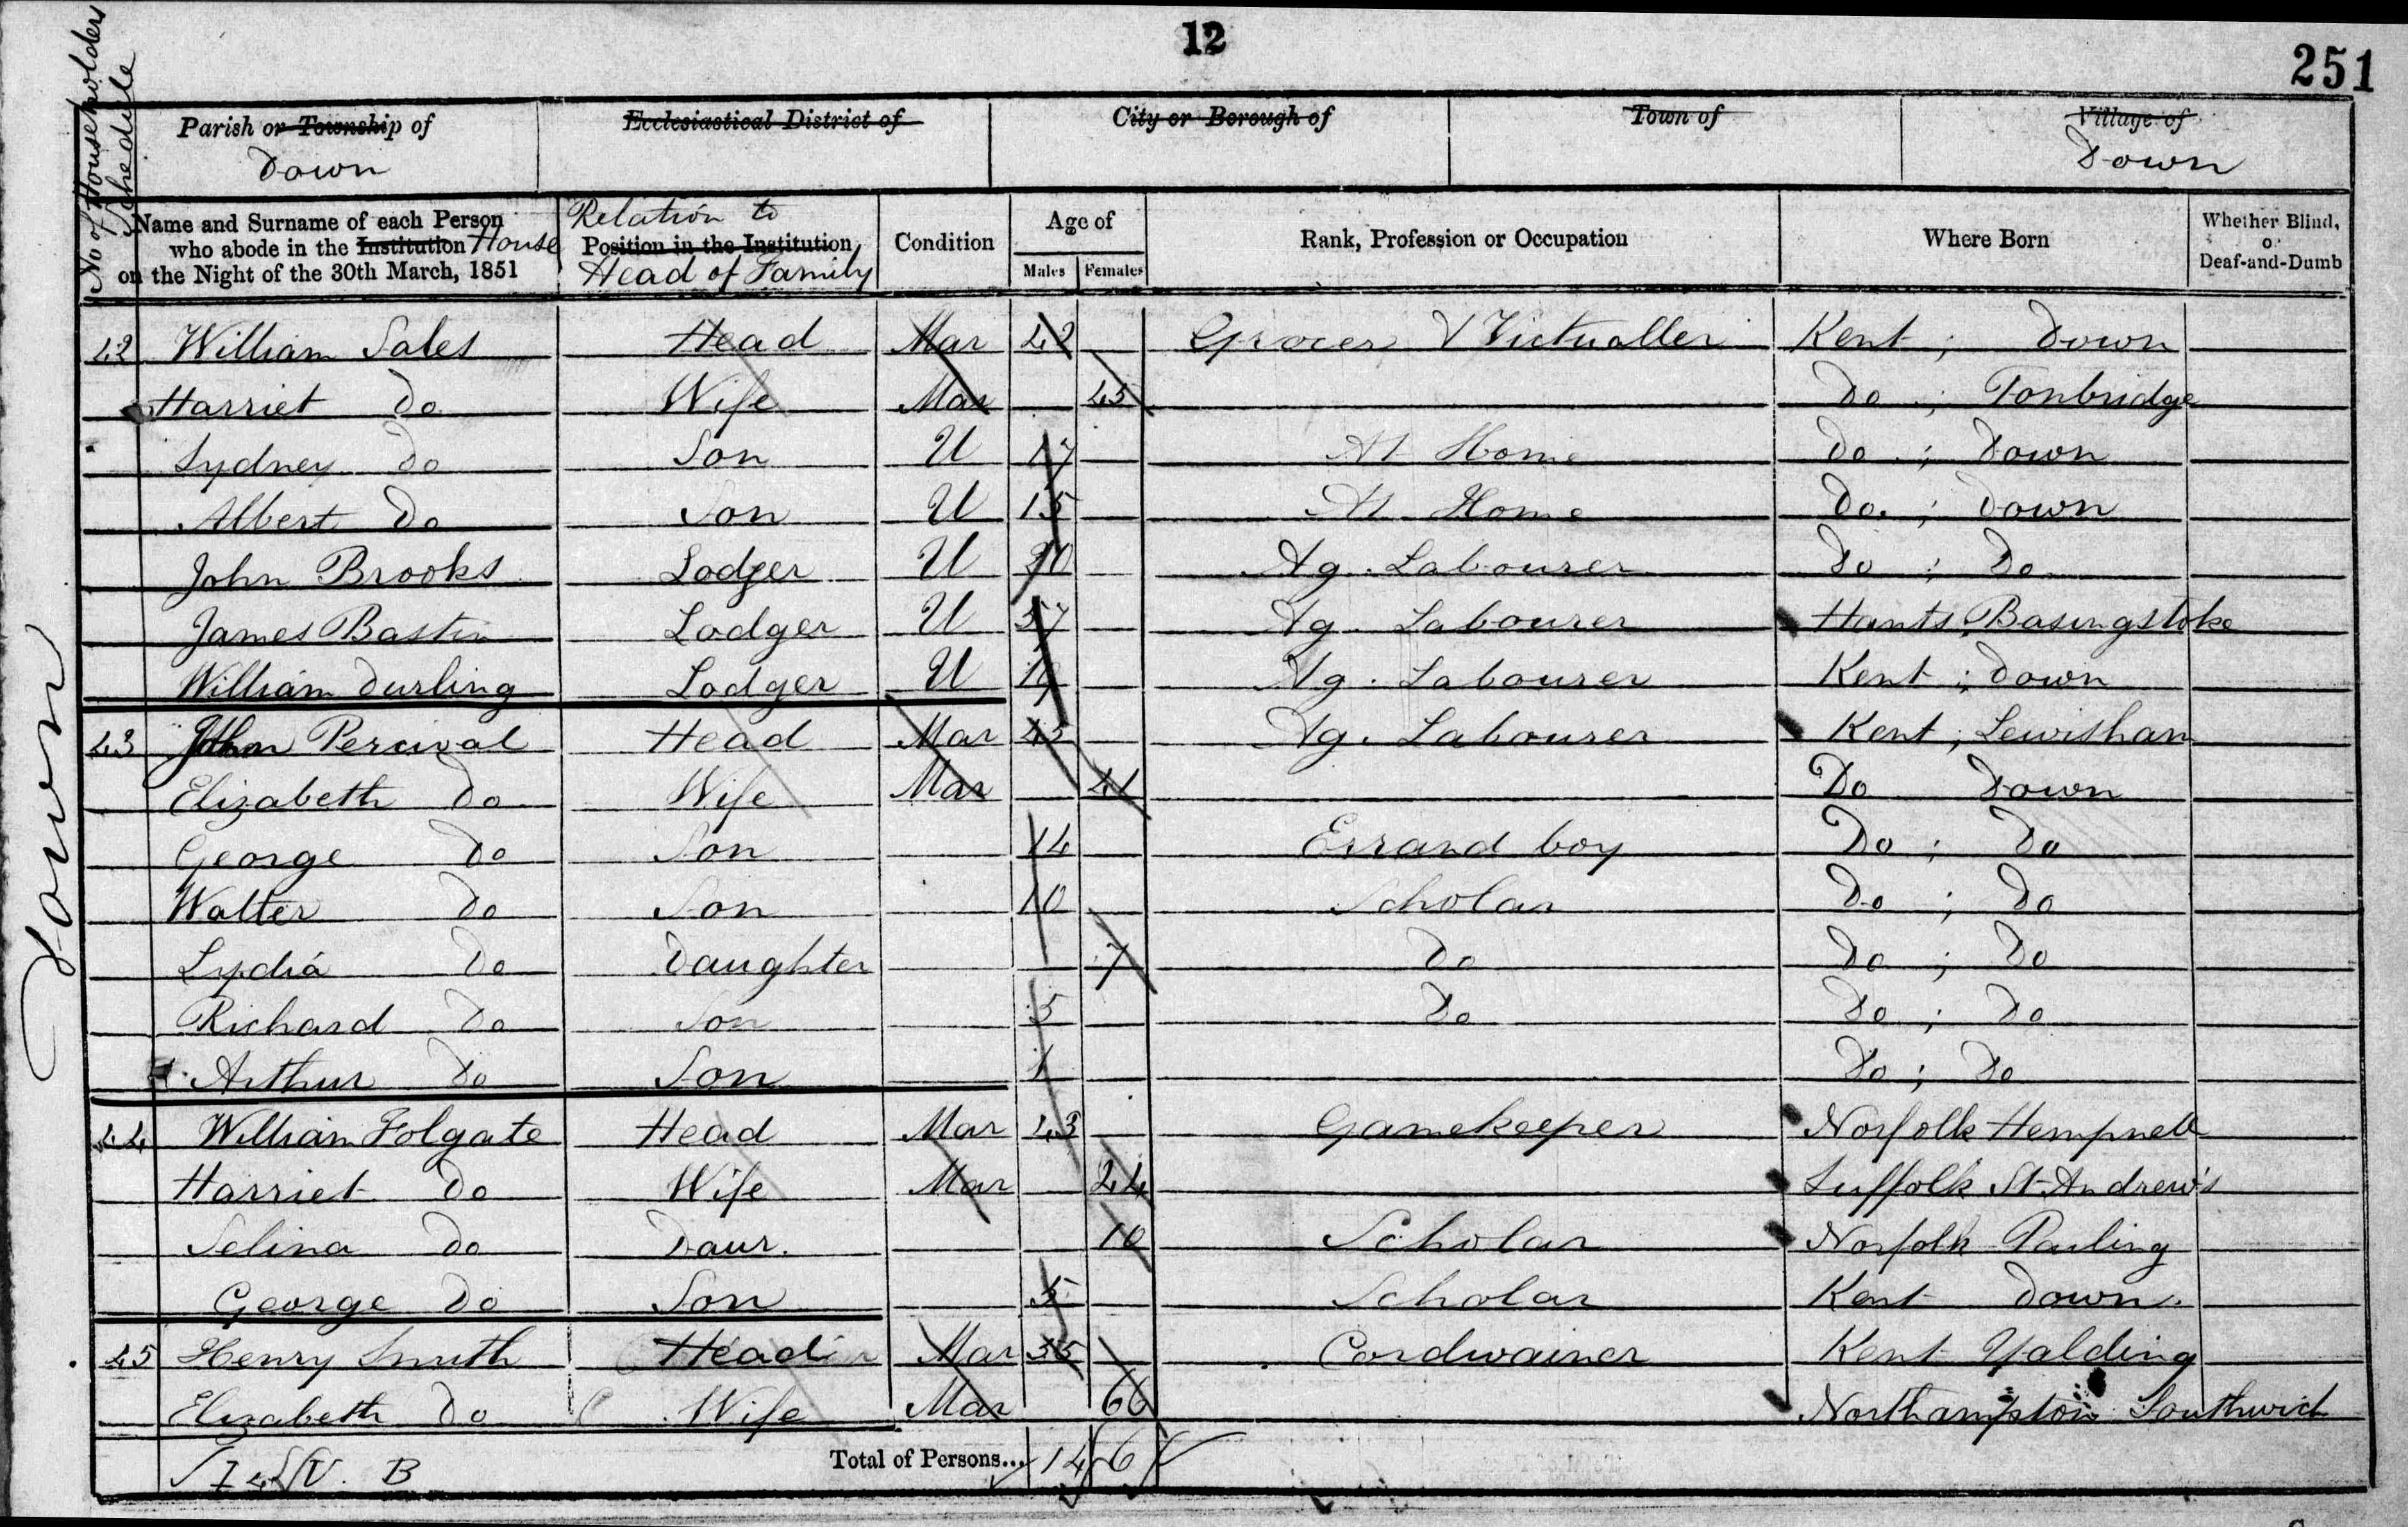 12
251
No of Householders Schedule
Parish or Township of Down
Ecclesiastical District of
City or Borough of
Town of
Village of Down
Name and Surname of each Person who abode in the Institution House on the Night of the 30th March, 1851
Relation to Position in the Institution Head of Family
Condition
Age of
Males Females
Rank, Profession or Occupation
Where Born
Whether Blind, or Deaf-and-Dumb
Down
42 William Sales Head Mar 42 Grocer & Victualler Kent ; Down
Harriet Do Wife Mar 45 Do ; Tonbridge
Sydney Do Son U 17 At Home Do ; Down
Albert Do Son U 15 At Home Do. ; Down
John Brooks Lodger U Ag. Labourer Do ; Do
James Bastin Lodger U 57 Ag. Labourer Hants, Basingstoke
William Durling Lodger U Ag. Labourer Kent ; Down
43 John Percival Head Mar 45 Ag. Labourer Kent ; Lewisham
Elizabeth Do Wife Mar 41 Do Down
George Do Son 14 Errand boy Do ; Do
Walter Do Son 10 Scholar Do ; Do
Lydia Do Daughter 7 Do Do ; Do
Richard Do Son 5 Do Do ; Do
Arthur Do Son 1 Do ; Do
44 William Folgate Head Mar 43 Gamekeeper Norfolk Hempnell
Harriet Do Wife Mar 24 Suffolk St Andrew's
Selina Do Daur. 10 Scholar Norfolk Pauling
George Do Son 5 Scholar Kent Down.
45 Henry Smith Head Mar 35 Cordwainer Kent Yalding
Elizabeth Do Wife Mar 66 Northampton Southwick
Total of Persons... 14 6